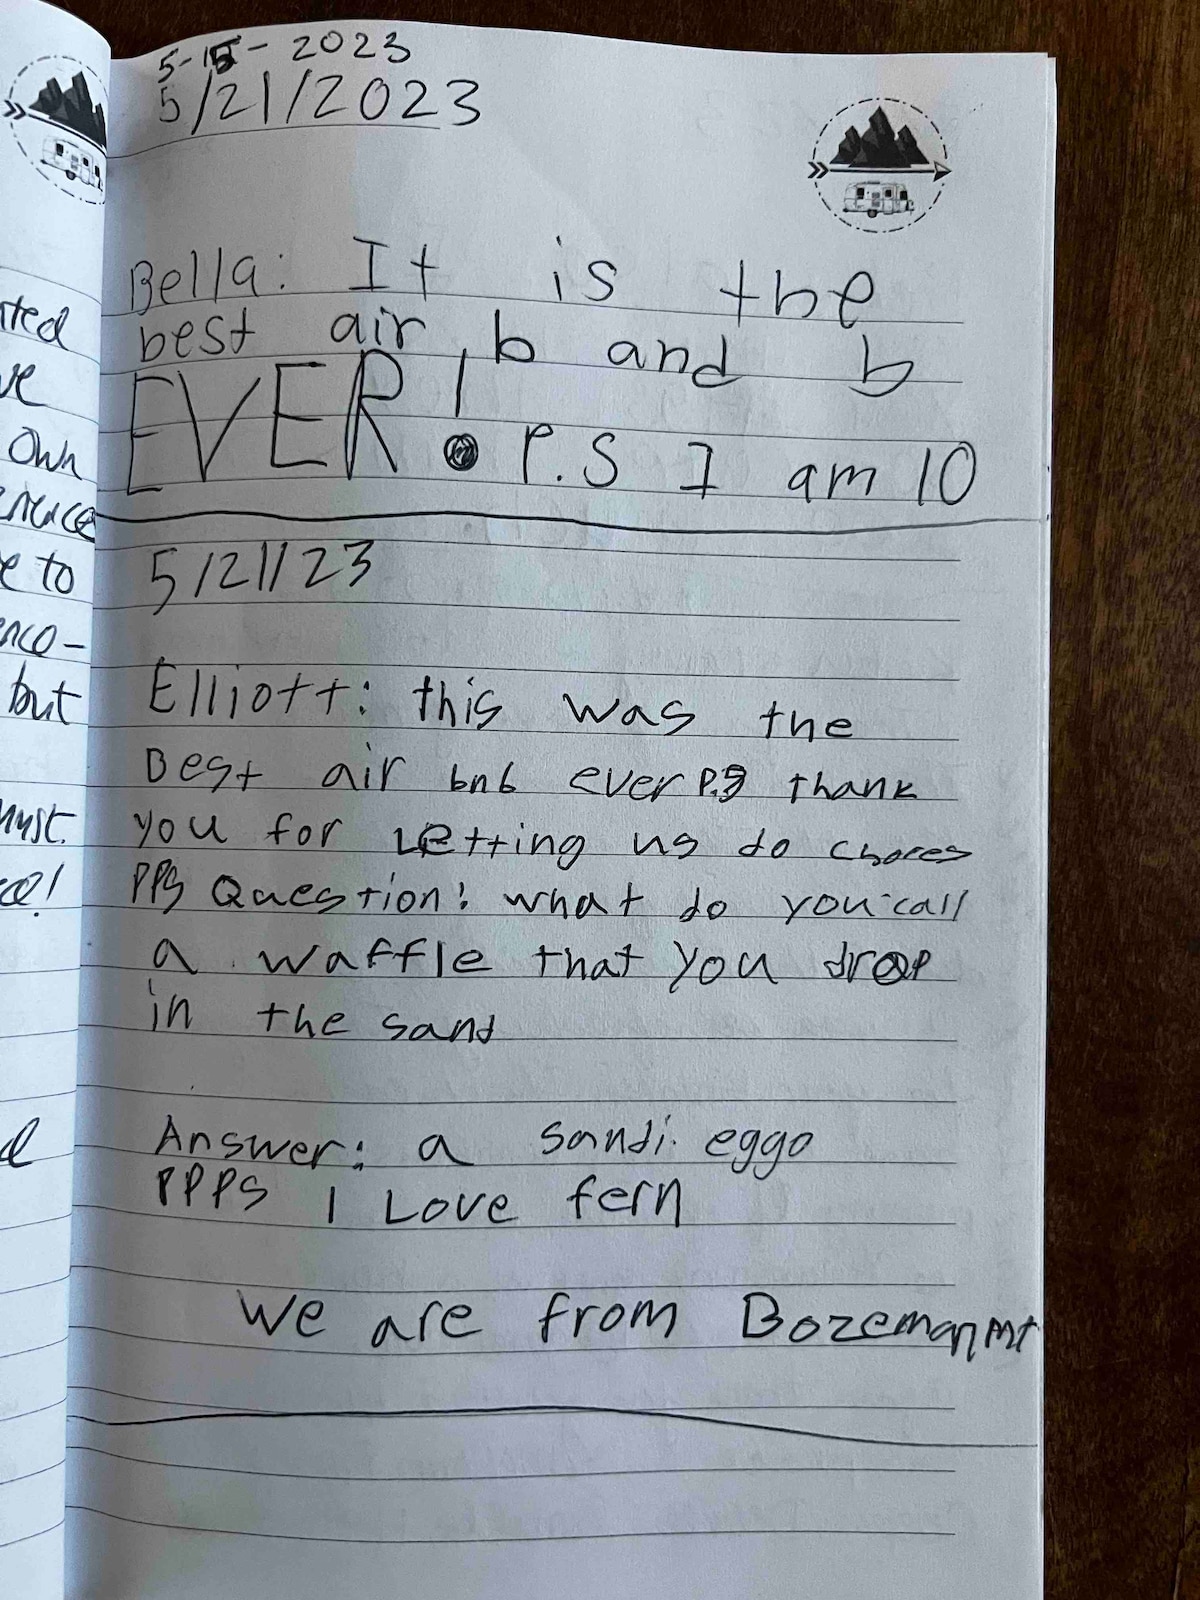 5-15-2023
5/21/2023
Bella: It is the
best air b and b
EVER! P.S I am 10
5/21/23
Elliott: this was the
Best air bnb ever P.S thank
you for Letting us do chores
PPS Question: what do you call
a waffle that you drop
in the sand
Answer: a sandi eggo
PPPS I Love fern
We are from Bozeman Mt
own
to
but